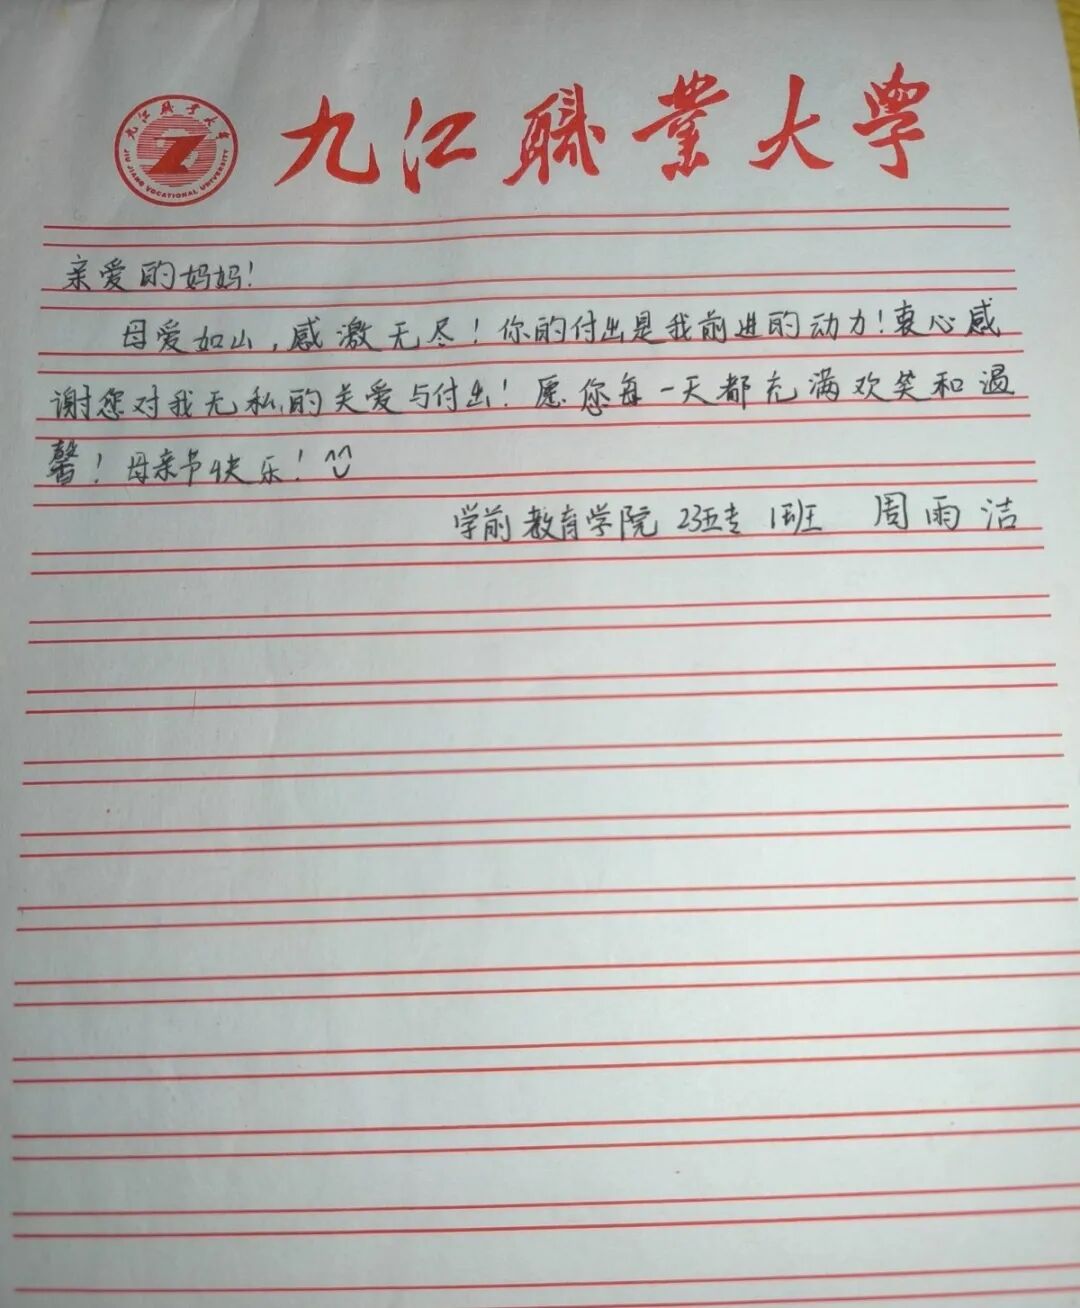 九江職業大學
九江職業大學
JIU JIANG VOCATIONAL UNIVERSITY
亲爱的妈妈!
母爱如山,感激无尽!你的付出是我前进的动力!衷心感
谢您对我无私的关爱与付出!愿您每一天都充满欢笑和温
馨!母亲节快乐!^^
学前教育学院 23五专 1班 周雨洁